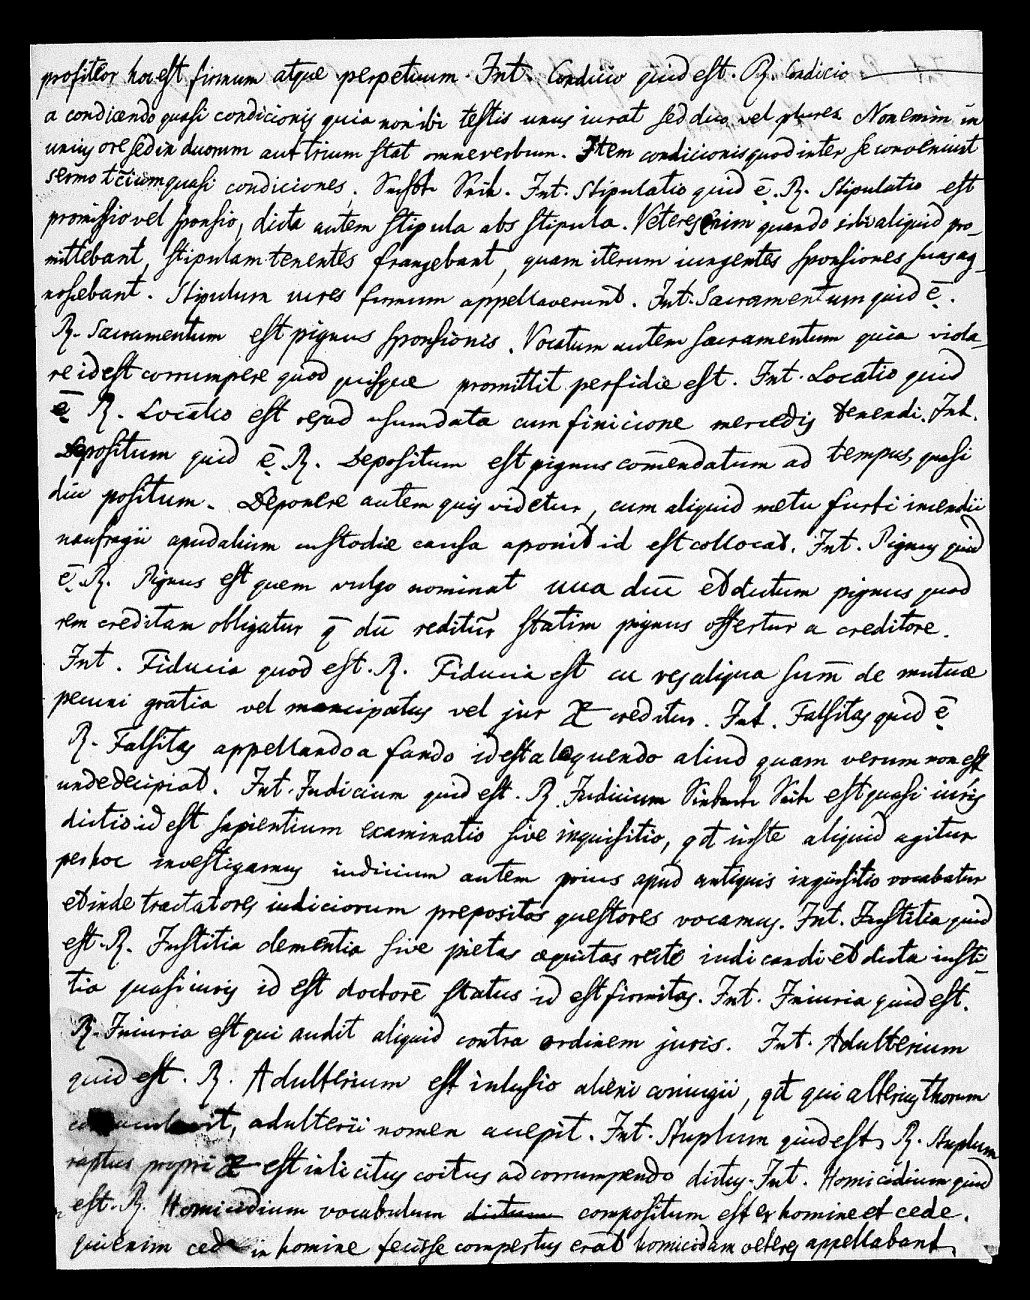 profiteor hoc est firmum atque perpetuum. Int. Condicio quid est. R. Condicio
a condicendo quasi condicionis quia non ibi testis unus iurat sed duo vel plures. Non enim in
unius ore sed in duorum aut trium stat omne verbum. Item condicionis quod inter se conveniunt
sermo tēium quasi condiciones. Int. Stipulatio quid ē. R. Stipulatio est
promissio vel sponsio, dicta autem stipula abs stipula. Veteres enim quando sibi aliquid pro-
mittebant, stipulam tenentes frangebant, quam iterum iungentes sponsiones suas ag-
noscebant. Stipulum veres firmum appellaverunt. Int. Sacramentum quid ē.
R. Sacramentum est pignus sponsionis. Vocatum autem sacramentum quia viola-
re id est corrumpere quod quisque promittit perfidie est. Int. Locatio quid
ē. R. Locatio est re ad usum data cum finicione mercedis tenendi. Int.
Depositum quid ē. R. Depositum est pignus com̄endatum ad tempus, quasi
diu positum. Deponere autem quis videtur, cum aliquid metu furti incendii
naufragii apud alium custodie causa aponit id est collocat. Int. Pignus quid
ē. R. Pignus est quem vulgo nominant uua dūc et dictum pignus quod
rem creditam obligatur q̄ dū reditūr statim pignus offertur a creditore.
Int. Fiducia quod est. R. Fiducia est cu res aliqua sum̄ de mutuae
pecuni gratia vel mancipatus vel jur creditur. Int. Falsitas quid ē
R. Falsitas appellando a fando id est a loquendo aliud quam verum non est
unde decipiat. Int. Iudicium quid est. R. Iudicium est quasi iuris
dictio id est sapientium examinatio sive inquisitio, qd iuste aliquid agitur
per hoc investigamus iudicium autem prius apud antiquis inquisitio vocabatur
et inde tractatores iudiciorum prepositos questores vocamus. Int. Iustitia quid
est. R. Iustitia clementia sive pietas aequitas recte iudicandi et dicta iusti-
tia quasi iuris id est doctorē status id est firmitas. Int. Iniuria quid est.
R. Iniuria est qui audit aliquid contra ordinem juris. Int. Adulterium
quid est. R. Adulterium est inlusio alieni coniugii, qd qui alterius thorum
adulterii nomen accepit. Int. Stuplum quid est. R. Stuplum
raptus propri est inlicitus coitus ad corrumpendo dictus. Int. Homicidium quid
est. R. Homicidium vocabulum dictum compositum est ex homine et cede.
qui enim cede in homine fecisse compertus erat homicidam veteres appellabant